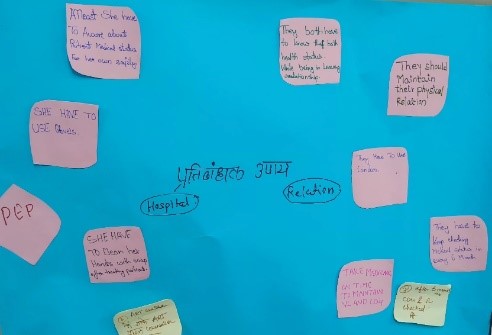 Atleast She have
To Aware about
Patients Medical status
For her own safety
They both have
to know their both
health status.
While being in
relationship.
They should
Maintain
their physical
Relation
SHE HAVE TO
USE Gloves.
प्रतिबंधात्मक उपाय
Hospital
Relation
They Have To Use
Condom
PEP
SHE HAVE
TO Clean her
Hands with soap
after treating patients
They have to
keep checking
status in
every 6 Month
TAKE MEDICINE
ON TIME
TO MAINTAIN
VL AND CD4
after 6
CD4 &
checked